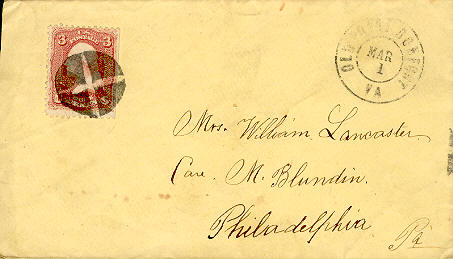 3 3
U.S. POSTAGE
OLD POINT COMFORT
MAR
1
VA
Mrs. William Lancaster
Care. M. Blundin.
Philadelphia
Pa